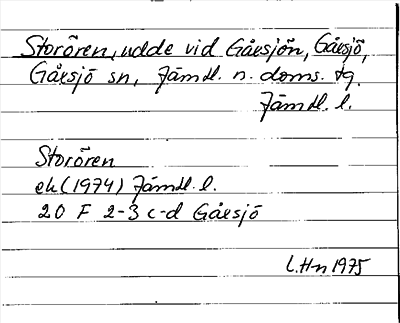 Storören, udde vid Gåxsjön, Gåxsjö,
Gåxsjö sn, Jämtl. n. doms. tg.
Jämtl. l.
Storören
ek (1974) Jämtl. l.
20 F 2-3 c-d Gåxsjö
L.H-n 1975